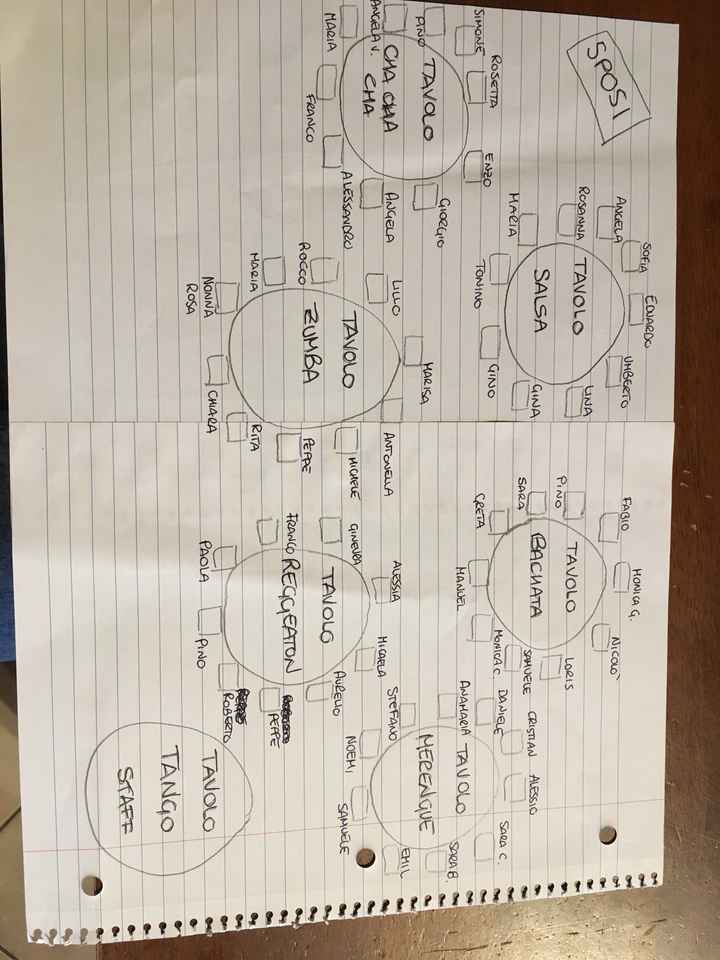 SPOSI
SIMONE
PINO
ROSETTA
ENZO
GIORGIO
ANGELA
ALESSANDRO
FRANCO
MARIA
ANGELA V.
TAVOLO
CHA CHA
CHA
SOFIA
EDUARDO
UMBERTO
LINA
GINA
GINO
TONINO
MARIA
ROSANNA
ANGELA
TAVOLO
SALSA
LILLO
MARISA
ANTONELLA
MICHELE
PEPPE
RITA
CHIARA
NONNA
ROSA
MARIA
ROCCO
TAVOLO
ZUMBA
FABIO
MONICA G.
NICOLÒ
LORIS
SAMUELE
MONICA C.
MANUEL
GRETA
SARA
PINO
TAVOLO
BACHATA
GINEVRA
ALESSIA
MICAELA
AURELIO
PEPPE
ROBERTO
PINO
PAOLA
FRANCO
TAVOLO
REGGEATON
DANIELE
CRISTIAN
ALESSIO
SARA C.
SARA B.
EMIL
SAMUELE
NOEMI
STEFANO
ANAMARIA
TAVOLO
MERENGUE
TAVOLO
TANGO
STAFF